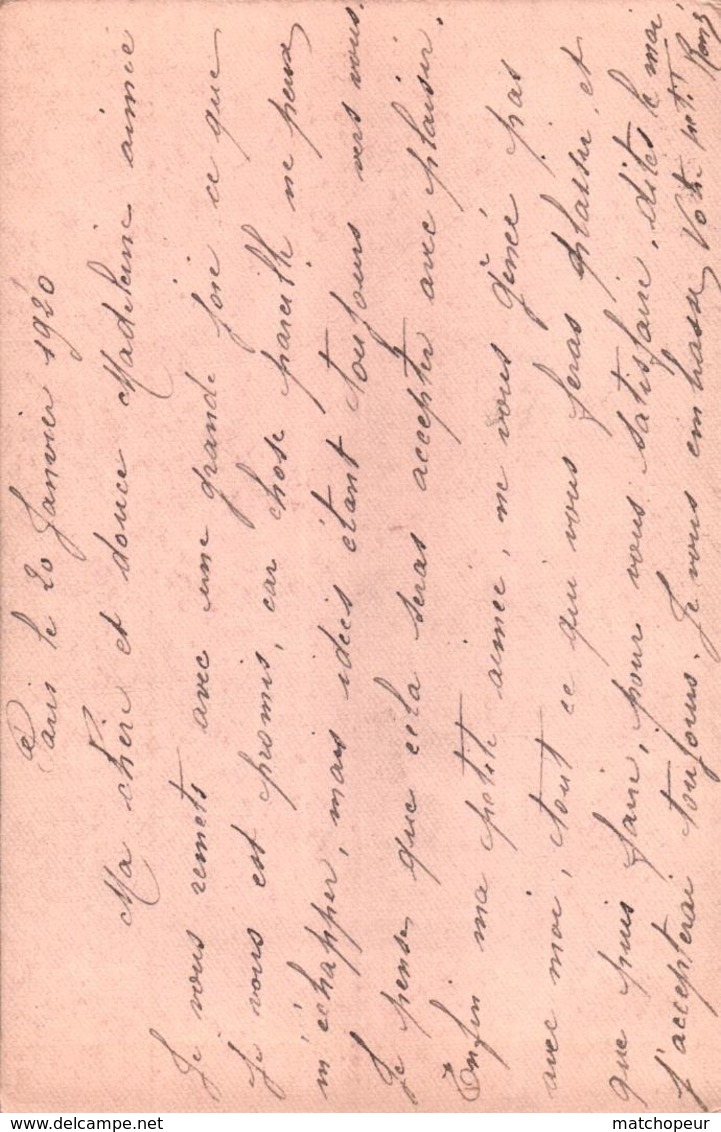 Paris le 20 Janvier 1920
Ma chère et douce Madeleine aimée
Je vous remets avec une grande joie ce que
je vous est promis, car chose pareille ne peux
m'échapper, mais idées étant toujours vers vous.
Je pense que cela seras accepter avec plaisir.
Enfin ma petite aimée, ne vous gênée pas
avec moi, tout ce qui vous feras plaisir, et
que puis faire, pour vous satisfaire, dites le moi
j'accepterai toujours. Je vous embrasse Votre petit
matchopeur